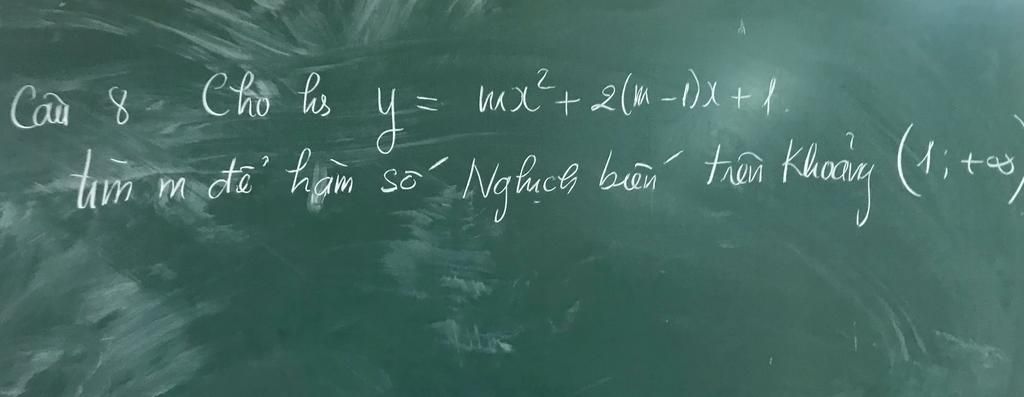 Câu 8 Cho hs y = mx² + 2(m-1)x + 1.
tìm m để hàm số Nghịch biến trên Khoảng (1; +∞)